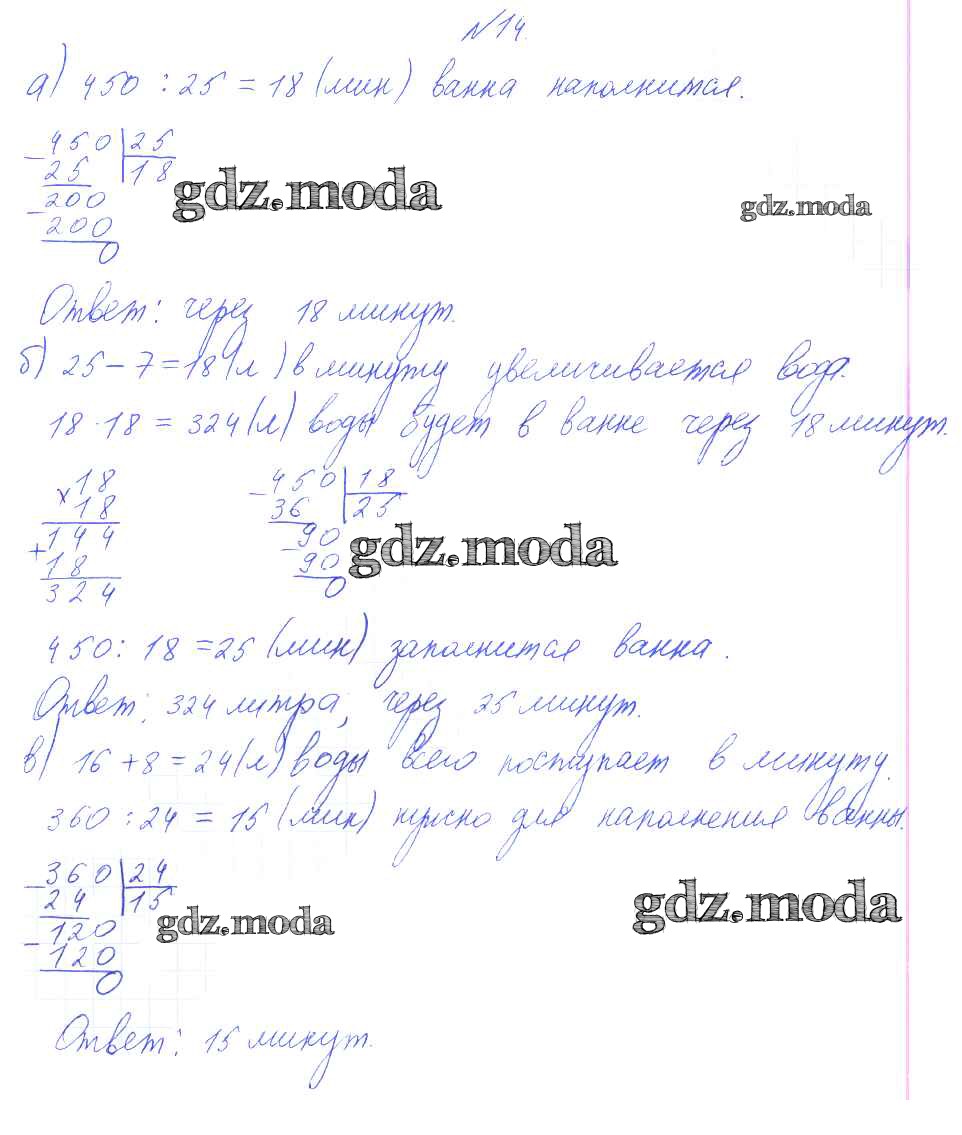 №14.
а) 450 : 25 = 18 (мин) ванна наполнится.
450 | 25
25 | 18
200
200
0
gdz.moda
gdz.moda
Ответ: через 18 минут.
б) 25 - 7 = 18 (л) в минуту увеличивается вода.
18 · 18 = 324 (л) воды будет в ванне через 18 минут.
× 18
18
+ 144
18
324
450 | 18
36 | 25
90
90
0
gdz.moda
450 : 18 = 25 (мин) заполнится ванна.
Ответ: 324 литра, через 25 минут.
в) 16 + 8 = 24 (л) воды всего поступает в минуту.
360 : 24 = 15 (мин) нужно для наполнения ванны.
360 | 24
24 | 15
120
120
0
gdz.moda
gdz.moda
Ответ: 15 минут.